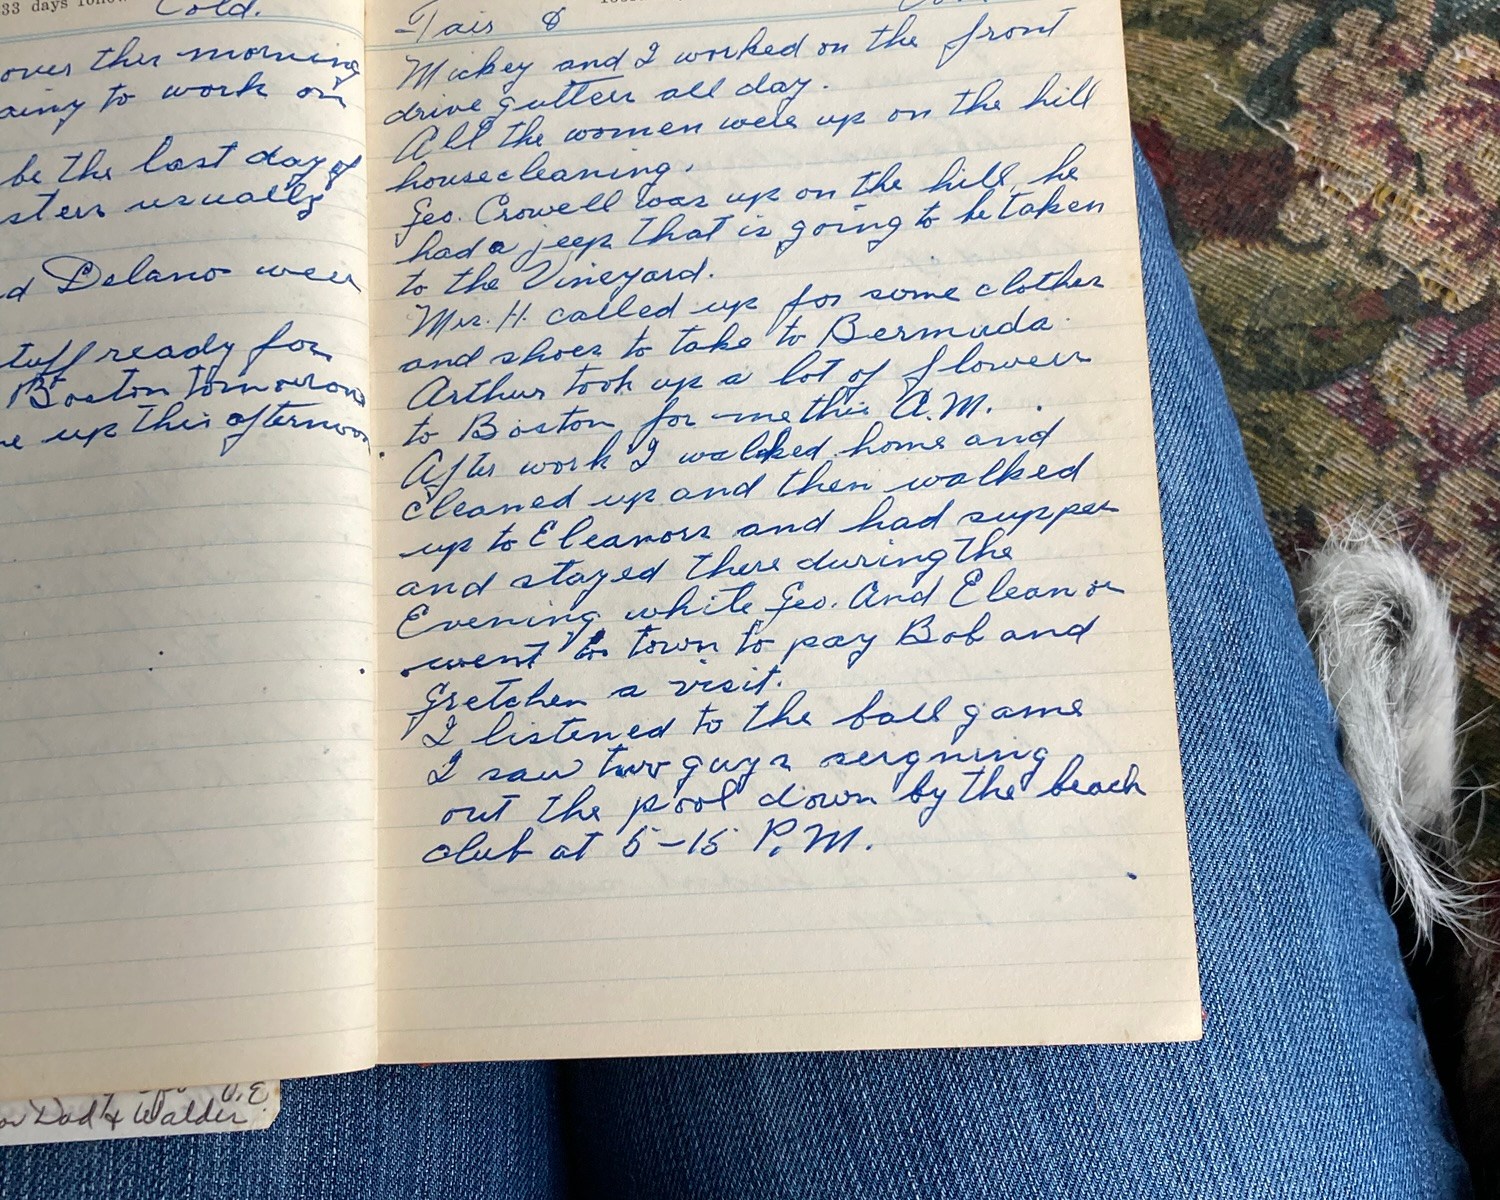 33 days
Cold.
over this morning
to work on
be the last day of
usually
Delano were
ready for
Boston tomorrow
up this afternoon
Fair &
Mickey and I worked on the front
drive gutters all day.
All the women were up on the hill
housecleaning.
Geo. Crowell was up on the hill, he
had a jeep that is going to be taken
to the Vineyard.
Mrs. H. called up for some clothes
and shoes to take to Bermuda.
Arthur took up a lot of flowers
to Boston for me this A.M.
After work I walked home and
cleaned up and then walked
up to Eleanors and had supper
and stayed there during the
Evening while Geo. And Eleanor
went to town to pay Bob and
Gretchen a visit.
I listened to the ball game
I saw two guys seigning
out the pool down by the beach
club at 5-15 P.M.
Dad & Walder